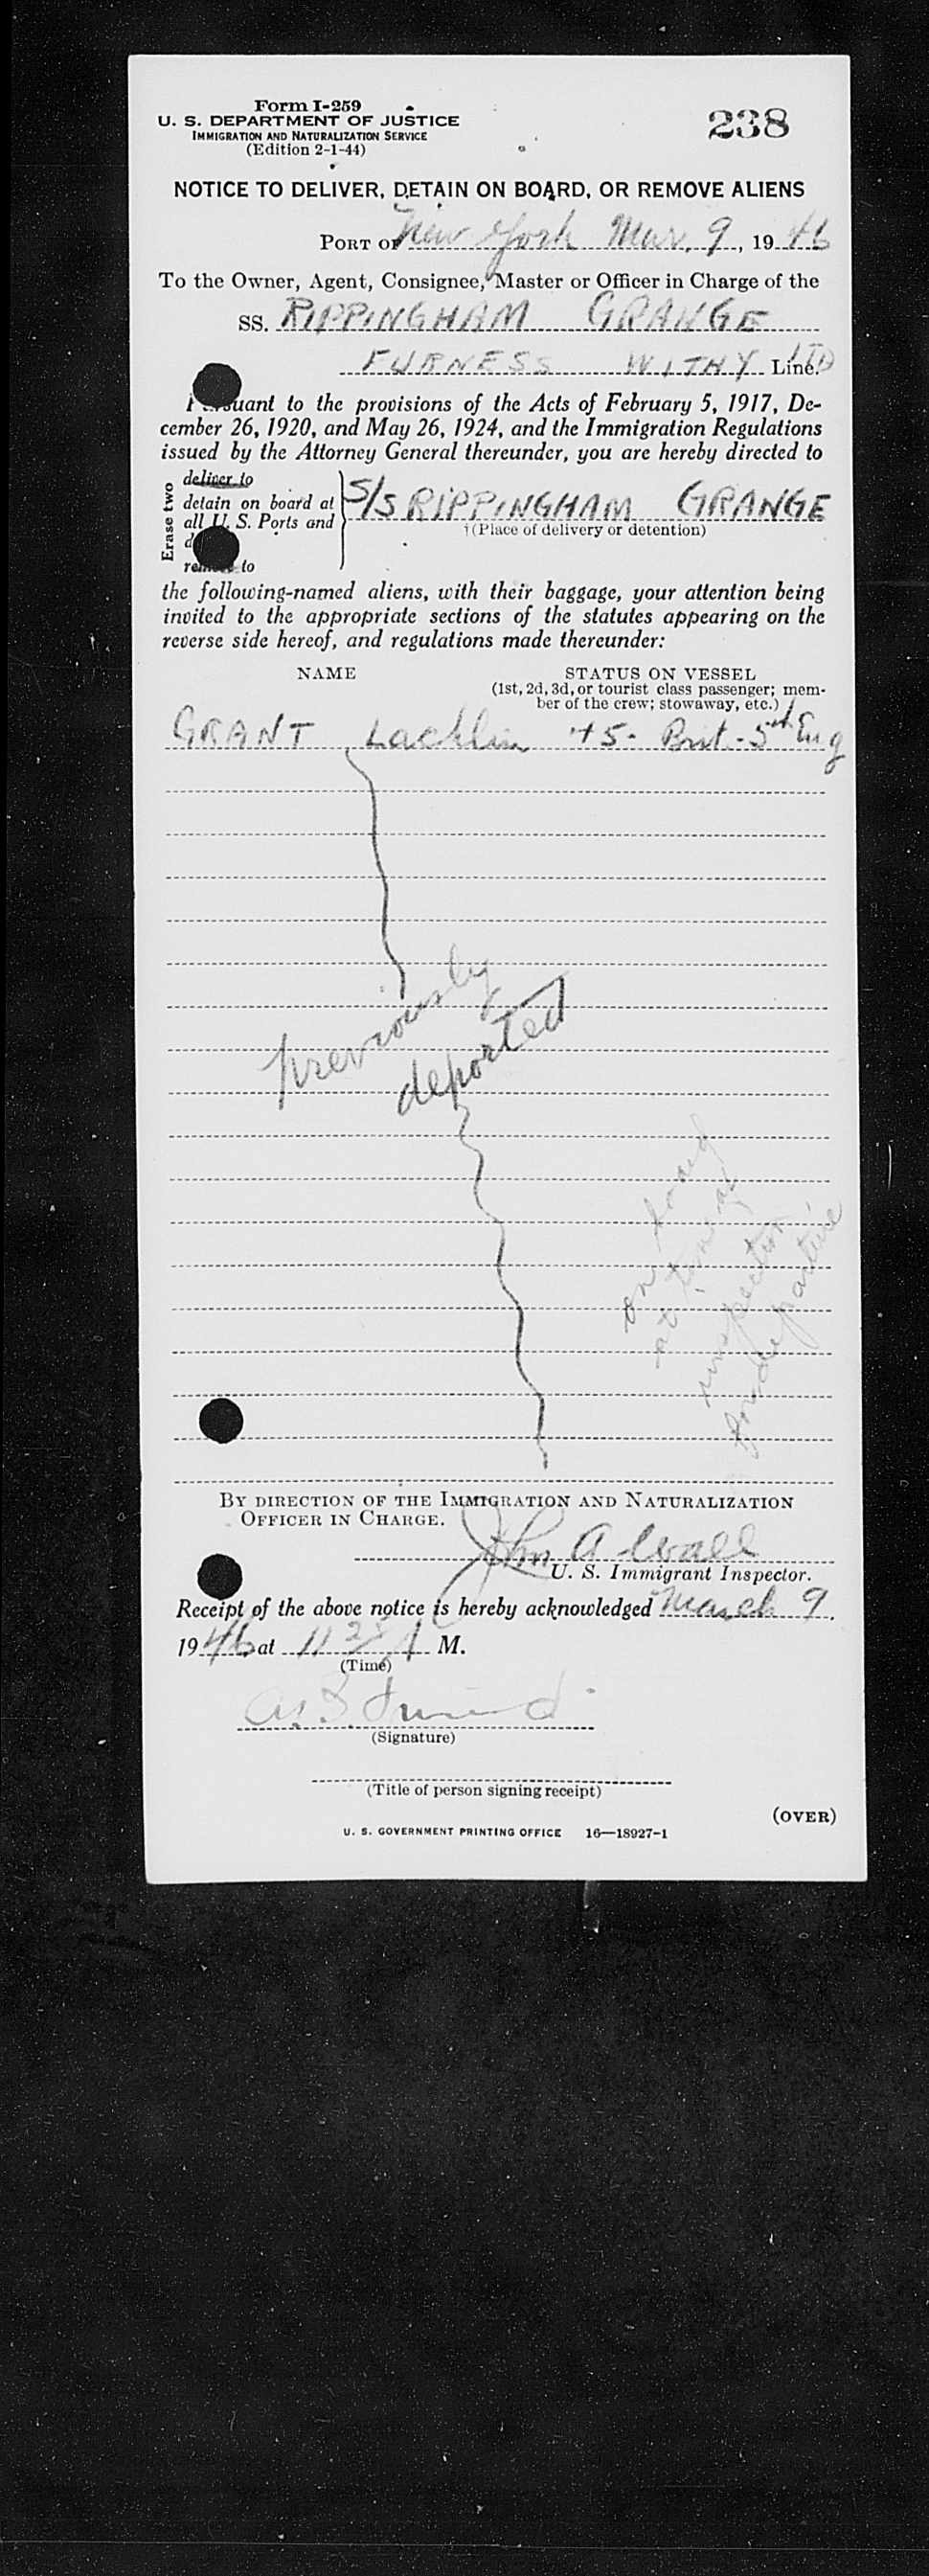 Form I-259
U. S. DEPARTMENT OF JUSTICE
IMMIGRATION AND NATURALIZATION SERVICE
(Edition 2-1-44)
238
NOTICE TO DELIVER, DETAIN ON BOARD, OR REMOVE ALIENS
PORT OF New York Mar. 9, 1946
To the Owner, Agent, Consignee, Master or Officer in Charge of the
SS. RIPPINGHAM GRANGE
FURNESS WITHY LTD Line.
Pursuant to the provisions of the Acts of February 5, 1917, De-
cember 26, 1920, and May 26, 1924, and the Immigration Regulations
issued by the Attorney General thereunder, you are hereby directed to
Erase two
deliver to
detain on board at
all U. S. Ports and
remove to
S/S RIPPINGHAM GRANGE
†(Place of delivery or detention)
the following-named aliens, with their baggage, your attention being
invited to the appropriate sections of the statutes appearing on the
reverse side hereof, and regulations made thereunder:
NAME
STATUS ON VESSEL
(1st, 2d, 3d, or tourist class passenger; mem-
ber of the crew; stowaway, etc.)
GRANT Lachlin 45. Brit. - 5th Eng
previously
deported
on board
at time of
inspection
for departure
BY DIRECTION OF THE IMMIGRATION AND NATURALIZATION
OFFICER IN CHARGE.
John A Wall
U. S. Immigrant Inspector.
Receipt of the above notice is hereby acknowledged March 9,
1946 at 11 A M.
(Time)
(Signature)
(Title of person signing receipt)
(OVER)
U. S. GOVERNMENT PRINTING OFFICE 16—18927-1